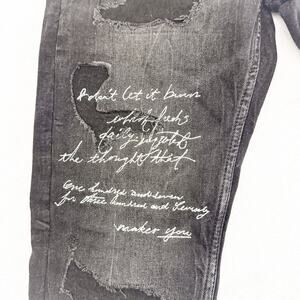 I don't let it burn
which feeds
the thoughts that
One hundred and eleven
for three hundred and seventy
makes you